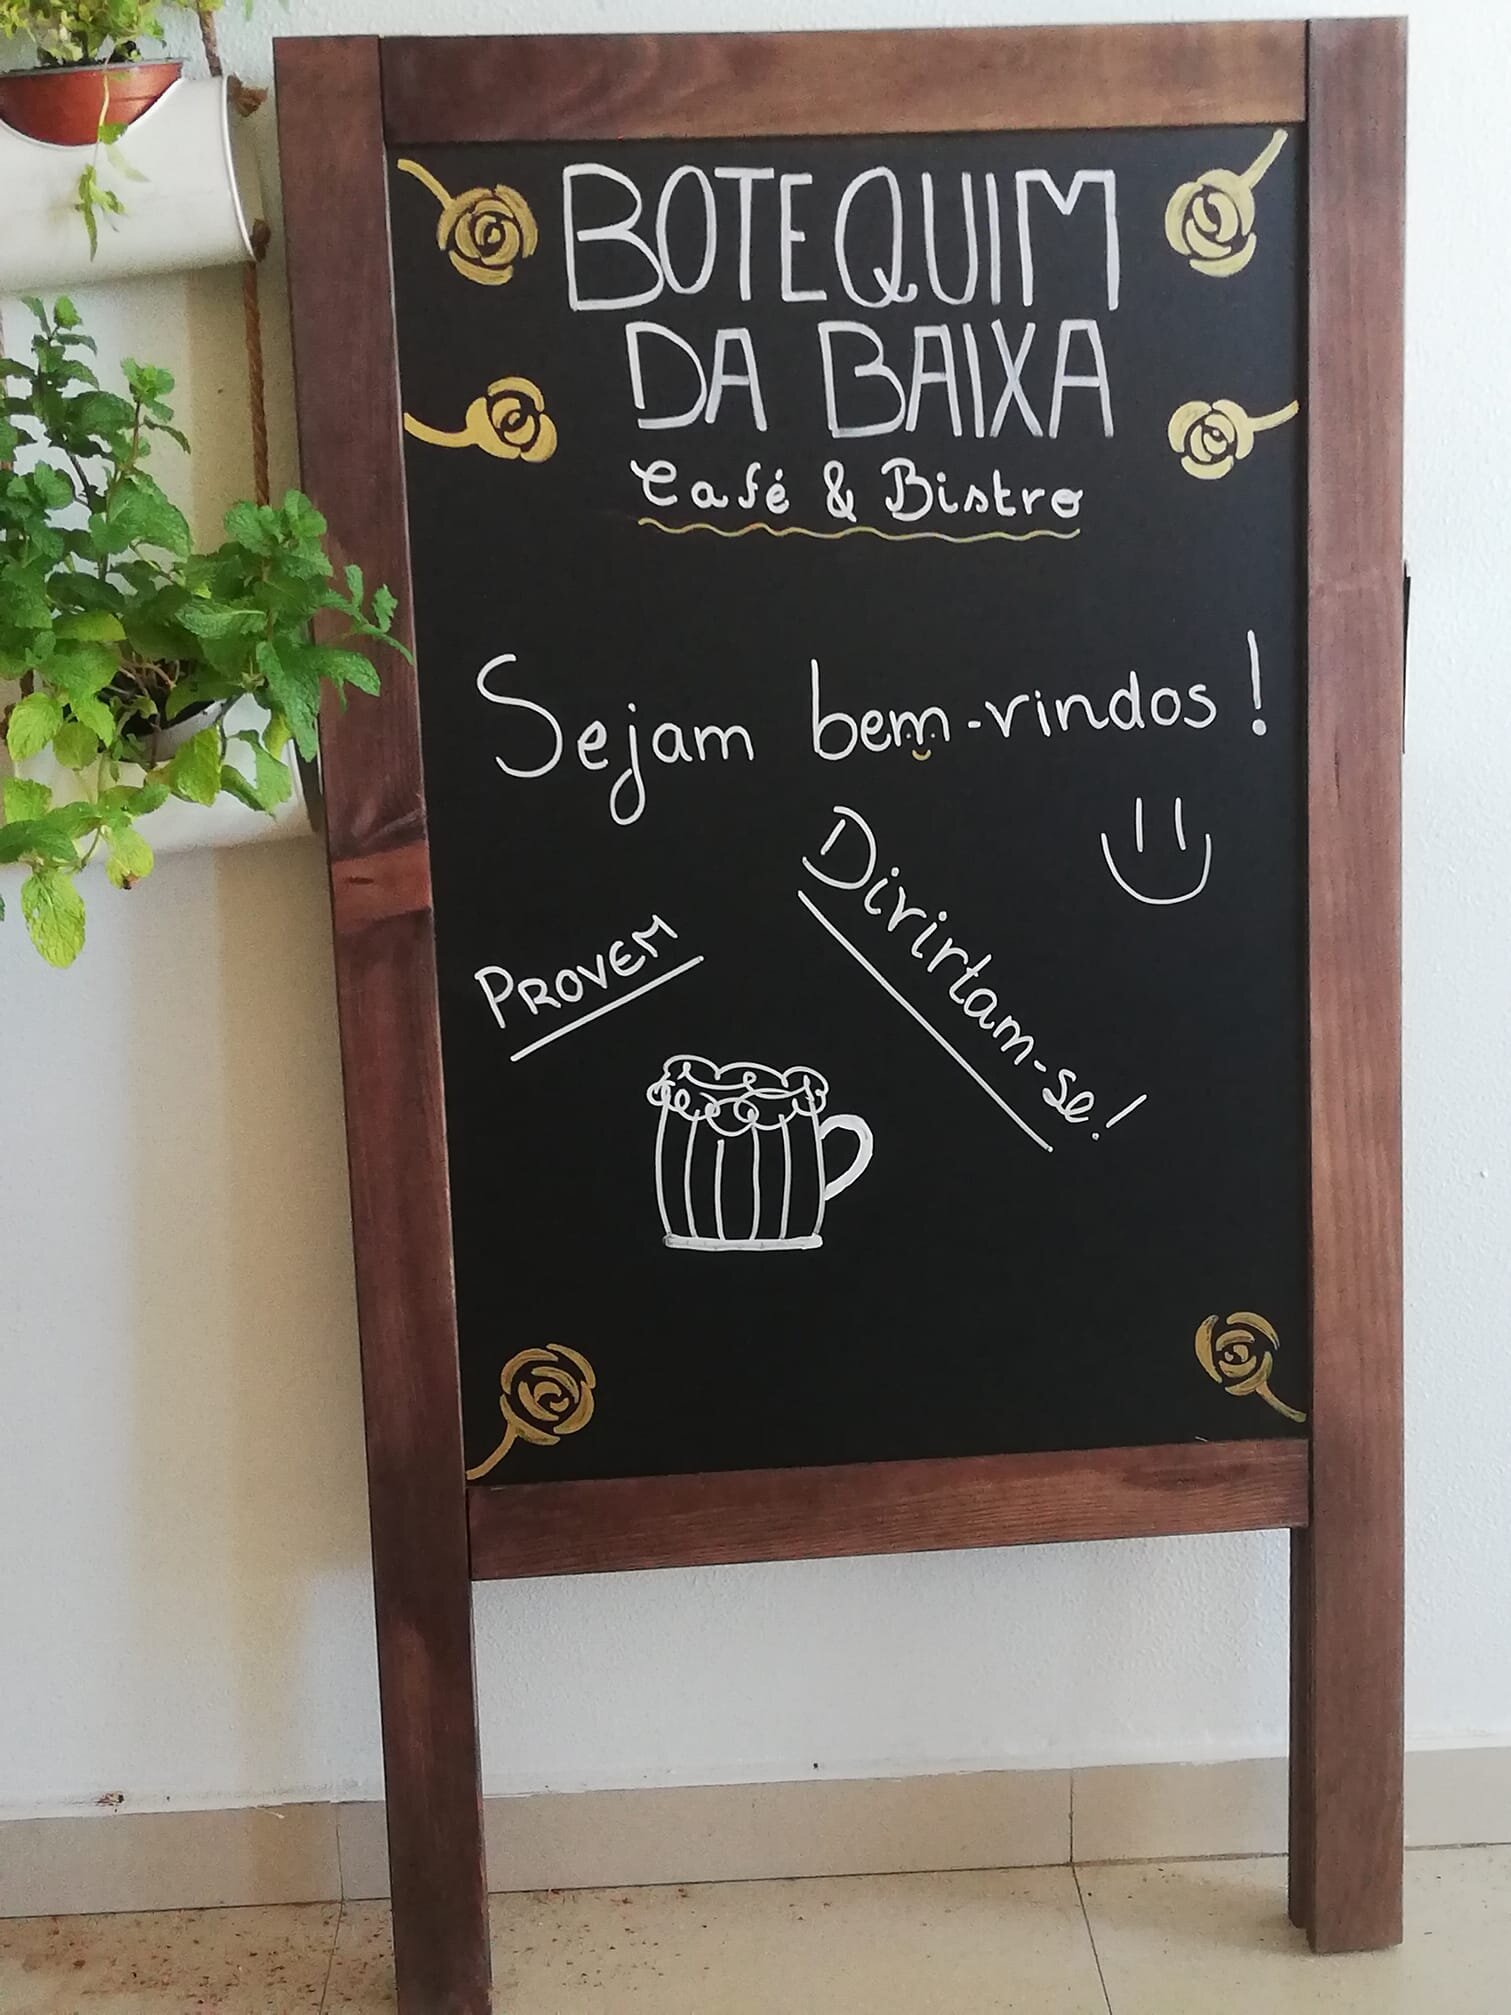 BOTEQUIM
DA BAIXA
Café & Bistro
Sejam bem-vindos!
PROVEM
Divirtam-se!